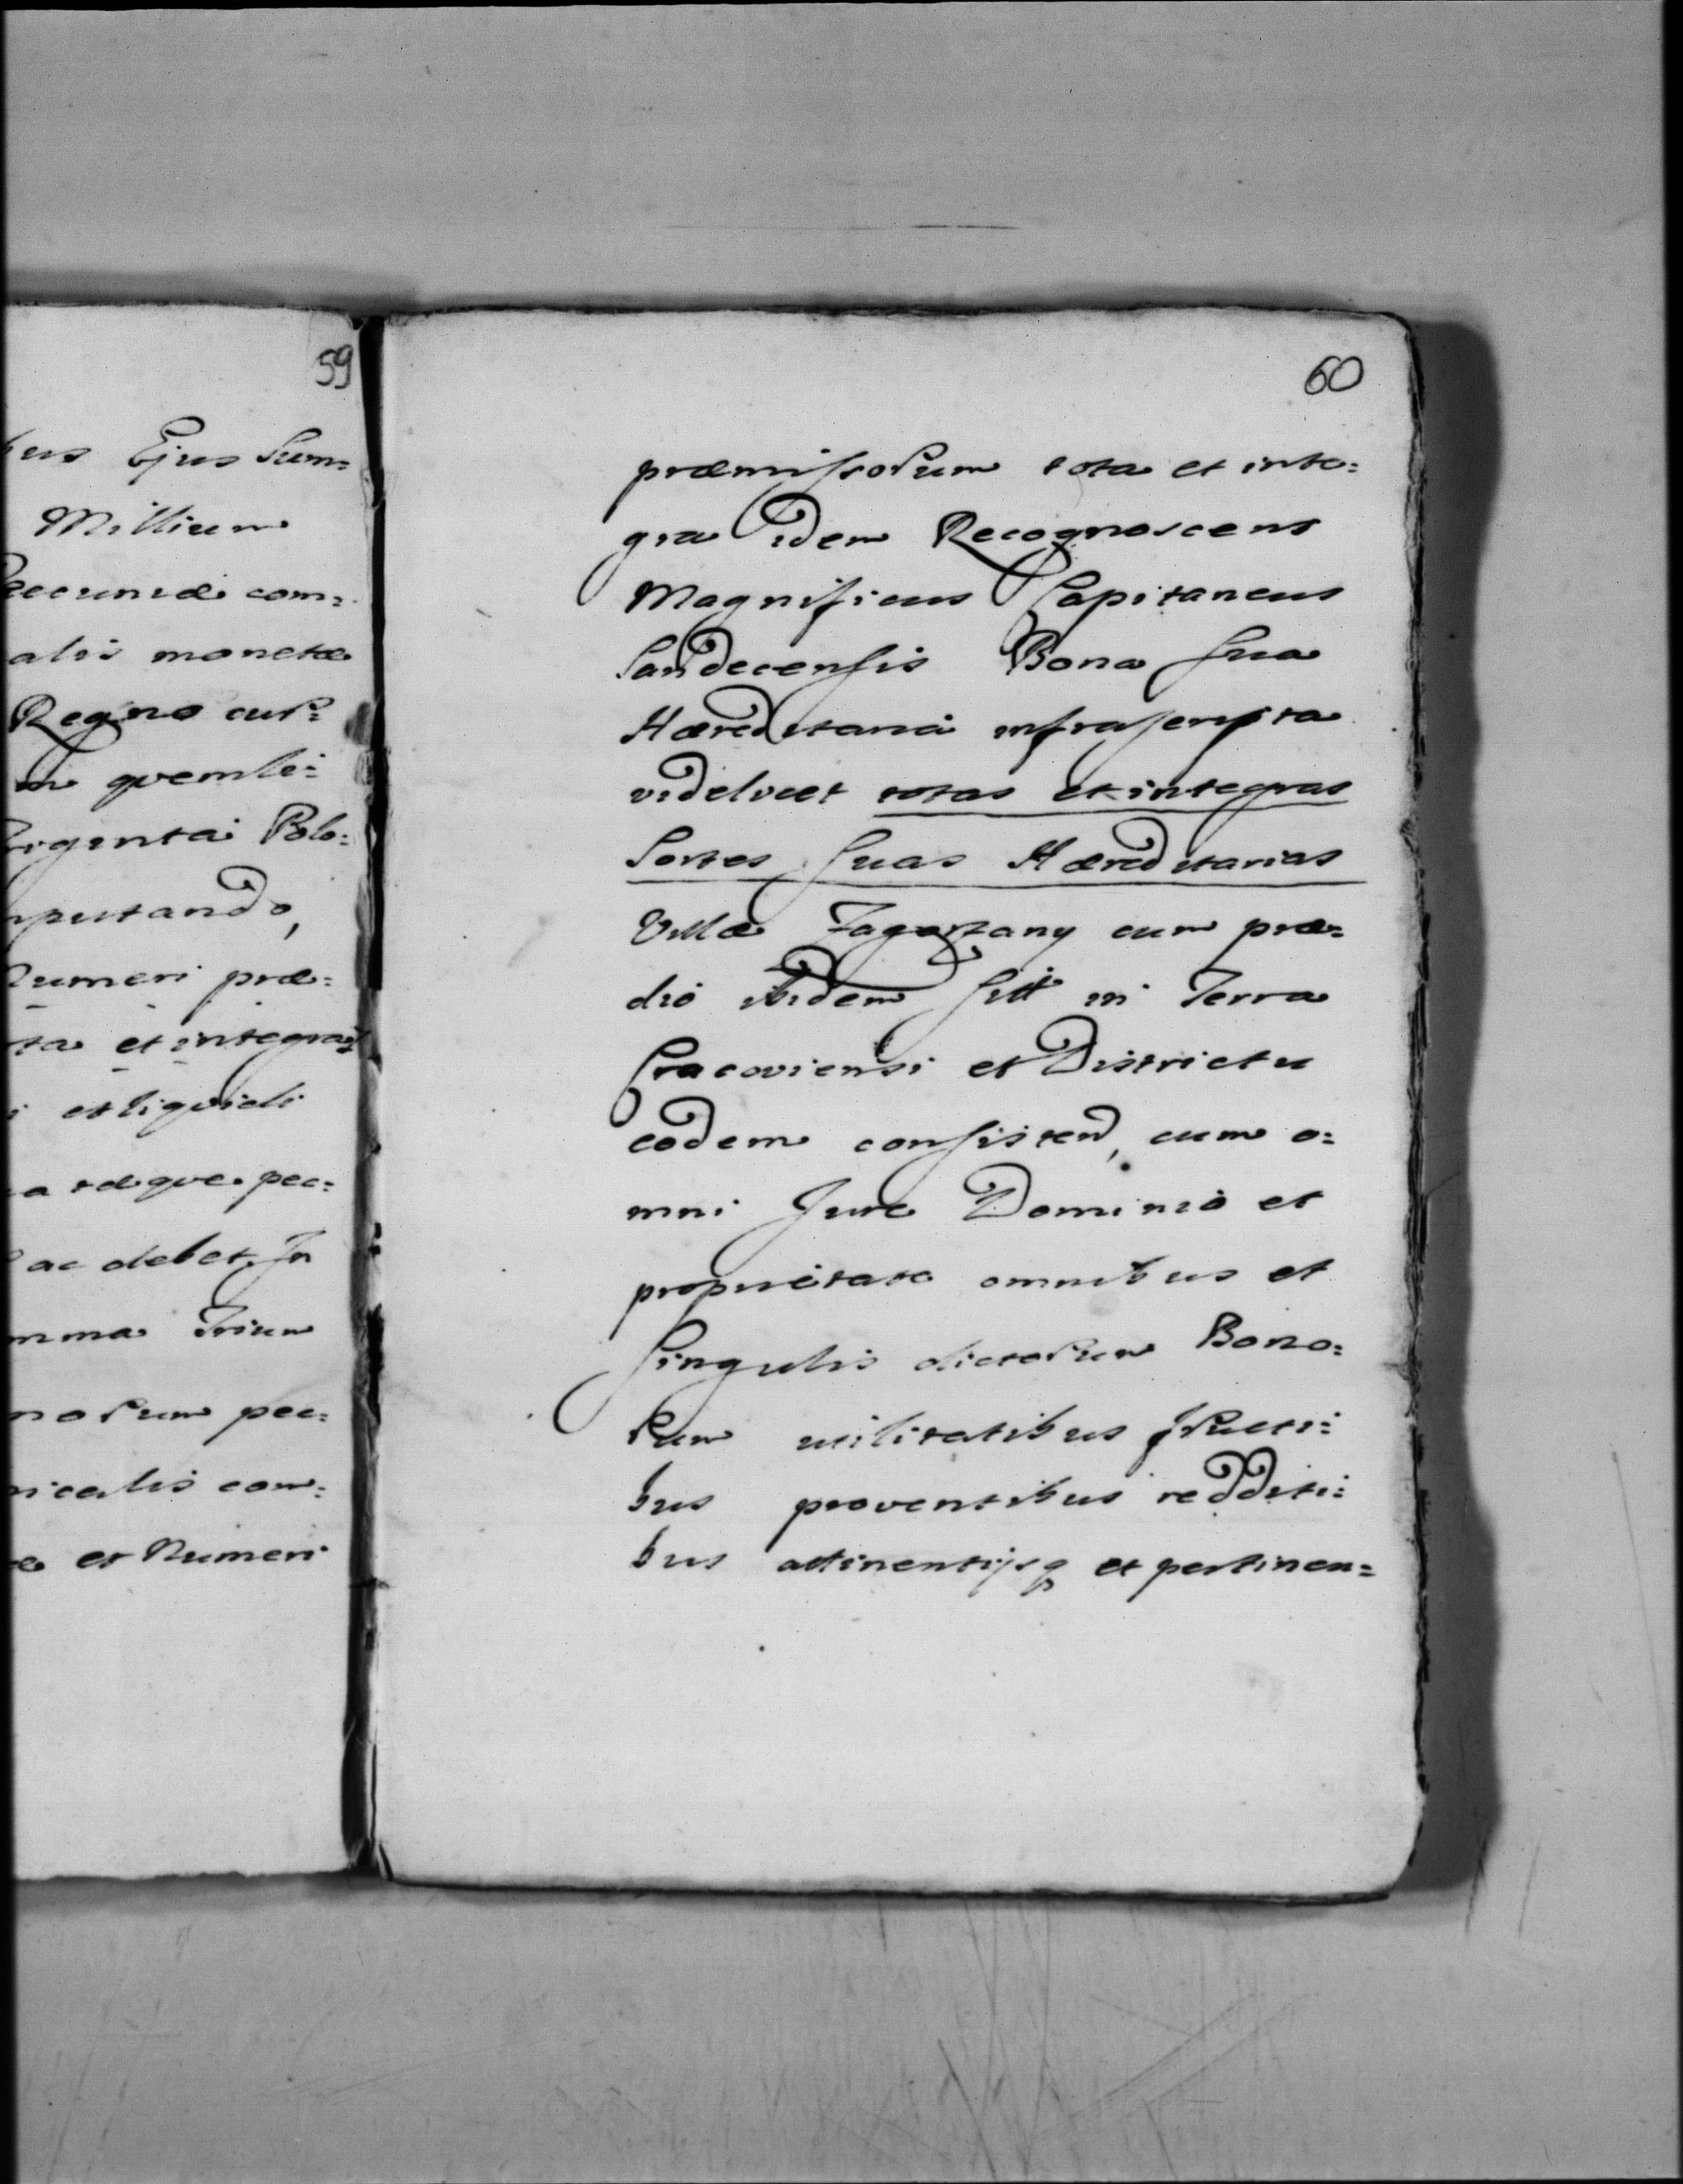 59
bus Ejus Sum=
Millium
Pecuniæ com=
alis monetæ
Regno cur=
in quemli=
Triginta Polo=
mputando,
Numeri præ=
ta et integra
i et liquidi
pec=
ac debet, In
mma Trium
norum pec=
nicalis com=
æ et Numeri
60
præmissorum tota et inte=
gra idem Recognoscens
Magnificus Capitaneus
Sandecensis Bona sua
Hæreditaria infrascripta
videlicet totas et integras
Sortes suas Hæreditarias
Villæ Zagorzany cum præ=
dio ibidem sitt in Terra
Cracoviensi et Districtu
eodem consistend, cum o=
mni Jure Dominio et
proprietate omnibus et
singulis dictorum Bono=
rum utilitatibus fructi=
bus proventibus redditi=
bus attinentijsq et pertinen=